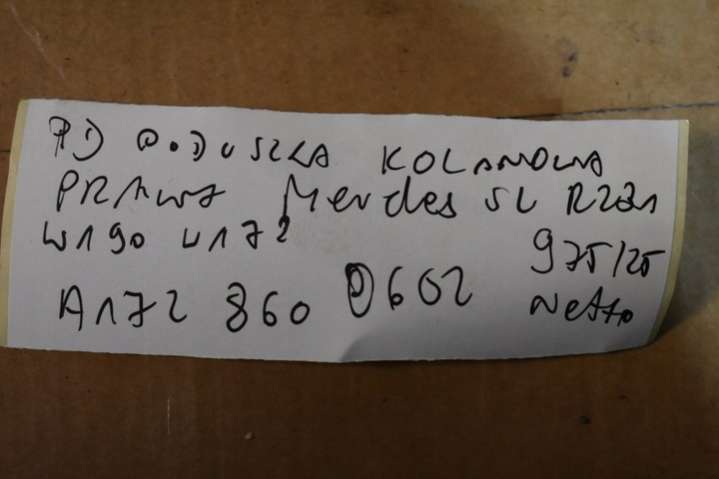 PD PODUSZKA KOLANOWA
PRAWA Mercdes SL R231
W190 W172
975/25
A172 860 0602 Netto